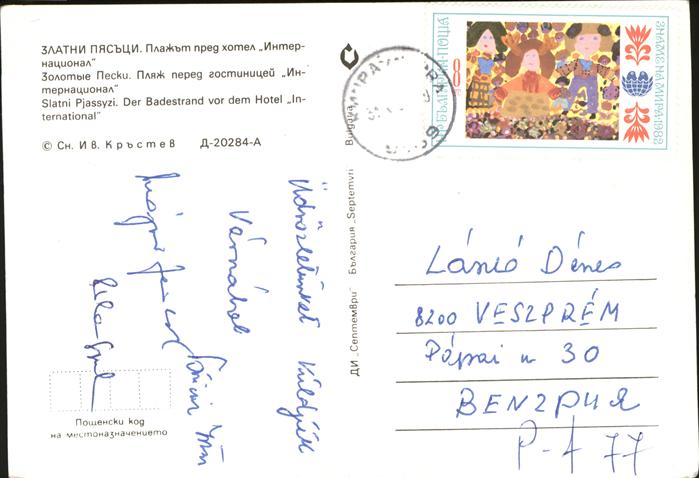 ЗЛАТНИ ПЯСЪЦИ. Плажът пред хотел „Интер-
национал"
Золотые Пески. Пляж перед гостиницей „Ин-
тернационал"
Slatni Pjassyzi. Der Badestrand vor dem Hotel „In-
ternational"
© Сн. Ив. Кръстев Д-20284-А
Üdvözletünket Küldjük
Várnából
Пощенски код
на местоназначението
ДИ „Септември" България „Septemvri
Bulgaria
НР БЪЛГАРИЯ·ПОЩА
8
ЗНАМЕ НА МИРА·1982
László Dénes
8200 VESZPRÉM
Pápai u 30
ВЕНГРИЯ
P-f 77